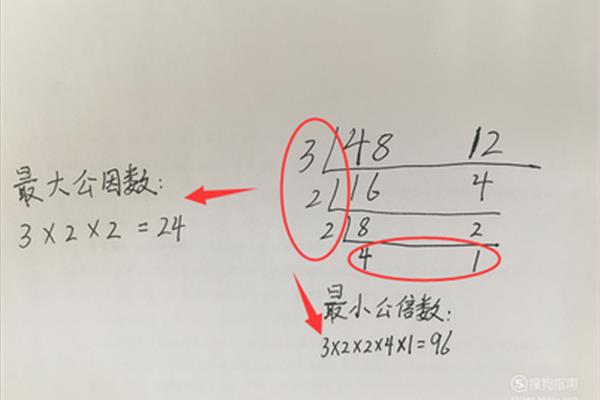 3 48 12
2 16 4
2 8 2
4 1
最大公因数:
3×2×2=24
最小公倍数:
3×2×2×4×1=96
搜狗指南